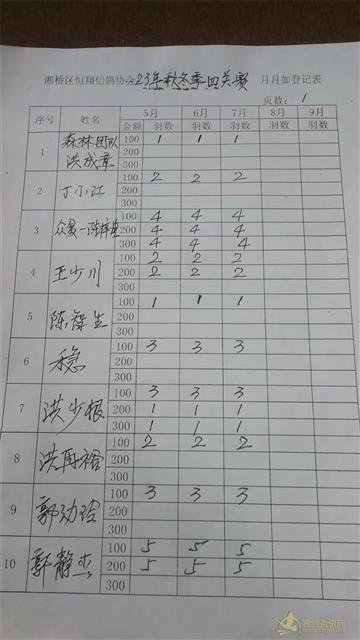 湘桥区恒翔信鸽协会23年秋冬季四关赛 月月加登记表
页数: 1
序号 姓名 5月 6月 7月 8月 9月
金额 羽数 羽数 羽数 羽数 羽数
1 森林团队 洪成章 100 1 1 1
200
300
2 丁小江 100 2 2 2
200
300
3 众爱一陈梓 100 4 4 4
200 4 4 4
300 4 4 4
4 王少川 100 2 2 2
200 2 2 2
300
5 陈 生 100 1 1 1
200
300
6 稳 100 3 3 3
200
300
7 洪少根 100 3 3 3
200 1 1 1
300 1 1 1
8 洪再裕 100 2 2 2
200
300
9 郭劲玲 100 3 3 3
200
300
10 郭静杰 100 5 5 5
200 5 5 5
300